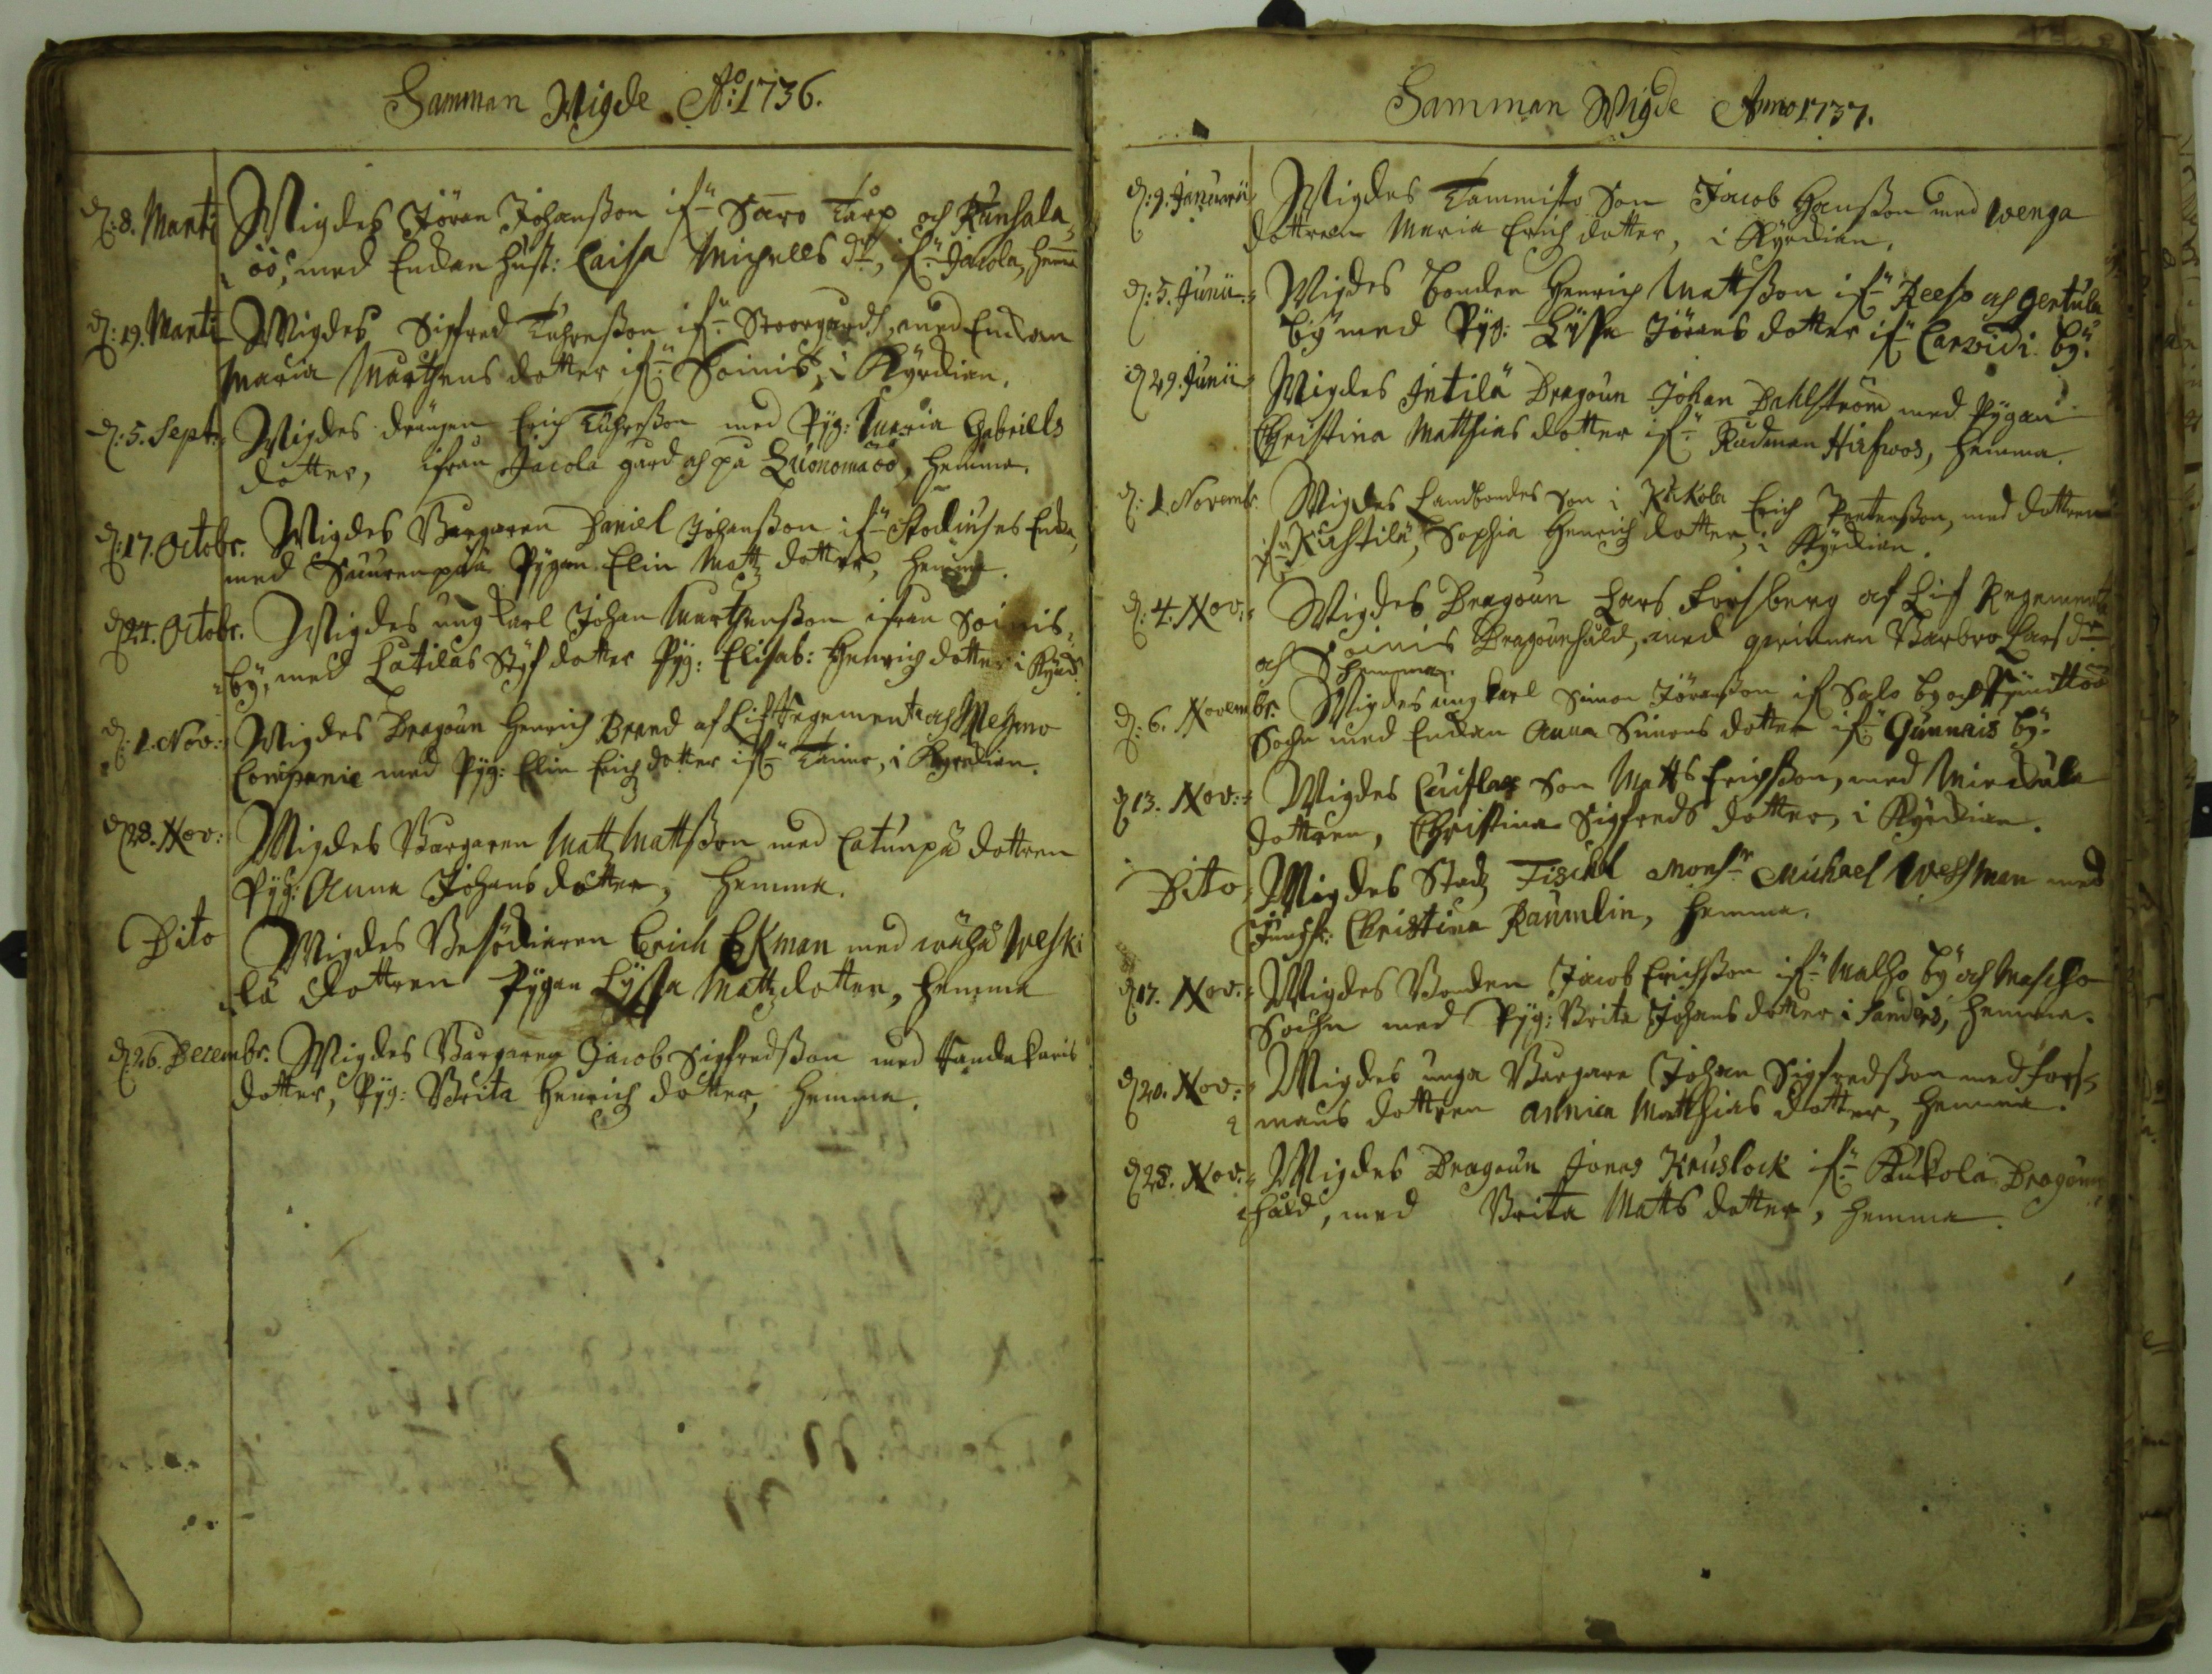 Samman Wigde Ao: 1736.
d: 8. Marti Wigdes Jöran Johansson ifrn Saro Tårp och Kunsala
öö, med Enckan hust: Caisa Michells dr, ifrn Jacola, hemma
d: 19. Marti Wigdes Sigfred Tuhresson ifrn Storgårds, med Enckan
Maria Marthens dotter ifrn Soinis, i Kyrckian.
d: 5. Sept: Wigdes drängen Erich Tuhresson med Pyg: Maria Gabriells
dotter, ifrån Jacola gård och på Luonomaöö, hemma.
d: 17. Octobr. Wigdes Borgaren Daniel Johansson ifrn
med Pygan Elin Matz dotter, hemma.
d 24. Octobr. Wigdes ung karl Johan Marthensson ifrån Soinis
by, med Latilas Styf dotter Pyg: Elisab: Henrichdotter i Kyrck:
d: 1. Nov: Wigdes Dragoun Henrich Brand af Lif Regemente och Mehmo
Compania med Pyg: Elin Erichdotter ifrn Taimo, i Kyrckian.
d 28. Nov: Wigdes Borgaren Matz Mattsson med dottren
Pyg: Anna Johans dotter, hemma.
Dito Wigdes Besökiaren Erich Ekman med wähä Weski
lä dottren Pygan Lyssa Matzdotter, hemma
d 26. Decembr. Wigdes Borgaren Jacob Sigfredsson med
dotter, Pyg: Brita Henrich dotter, hemma.
Samman Wigde Anno 1737.
d: 9. Januarii Wigdes Tammisto Son Jacob Hansson med Wenga
dottren Maria Erich dotter, i Kyrckian.
d: 5. Junii Wigdes bonden Henrich Mattsson ifrn Reeso och Gertula
by med Pyg: Lyssa Jörans dotter ifrn Carvidi by.
d 29. Junii Wigdes Intilä Dragoun Johan Dahlström med Pygan
Christina Matthias dotter ifrn Rudman Hirfwos, hemma.
d: 1. Novemb. Wigdes Landbondes Son i Kukola Erich Petersson, med dottren
ifrn Kuhstilä, Sophia Henrich dotter, i Kyrckian.
d: 4. Nov: Wigdes Dragoun Lars Forssberg af Lif Regemente
och Soinis Dragounhåld, med qwinnan Barbro Lars dr
hemma
d: 6. Novembr. Wigdes ung karl Simon Jöransson if Salo by och
Sochn med Enckan Anna Simons dotter ifrn Gunnais by.
d 13. Nov: Wigdes Son Matts Erichsson, med
dottren, Christina Sigfreds dotter, i Kyrckian.
Dito, Wigdes Stadz Fiscal Monsr Michael Wessman med
Jungfr: Christina Raumlin, hemma.
d 17. Nov: Wigdes Bonden Jacob Erichsson ifrn Malho by och Masko
Sochn med Pyg: Brita Johans dotter i Sanders, hemma.
d 20. Nov: Wigdes unga Borgare Johan Sigfredsson med Fors
mans dottren Annica Matthias dotter, hemma.
d 28. Nov. Wigdes Dragoun Jonas Kruslock ifrn Kukola Dragoun
håld, med Brita Matts dotter, hemma.